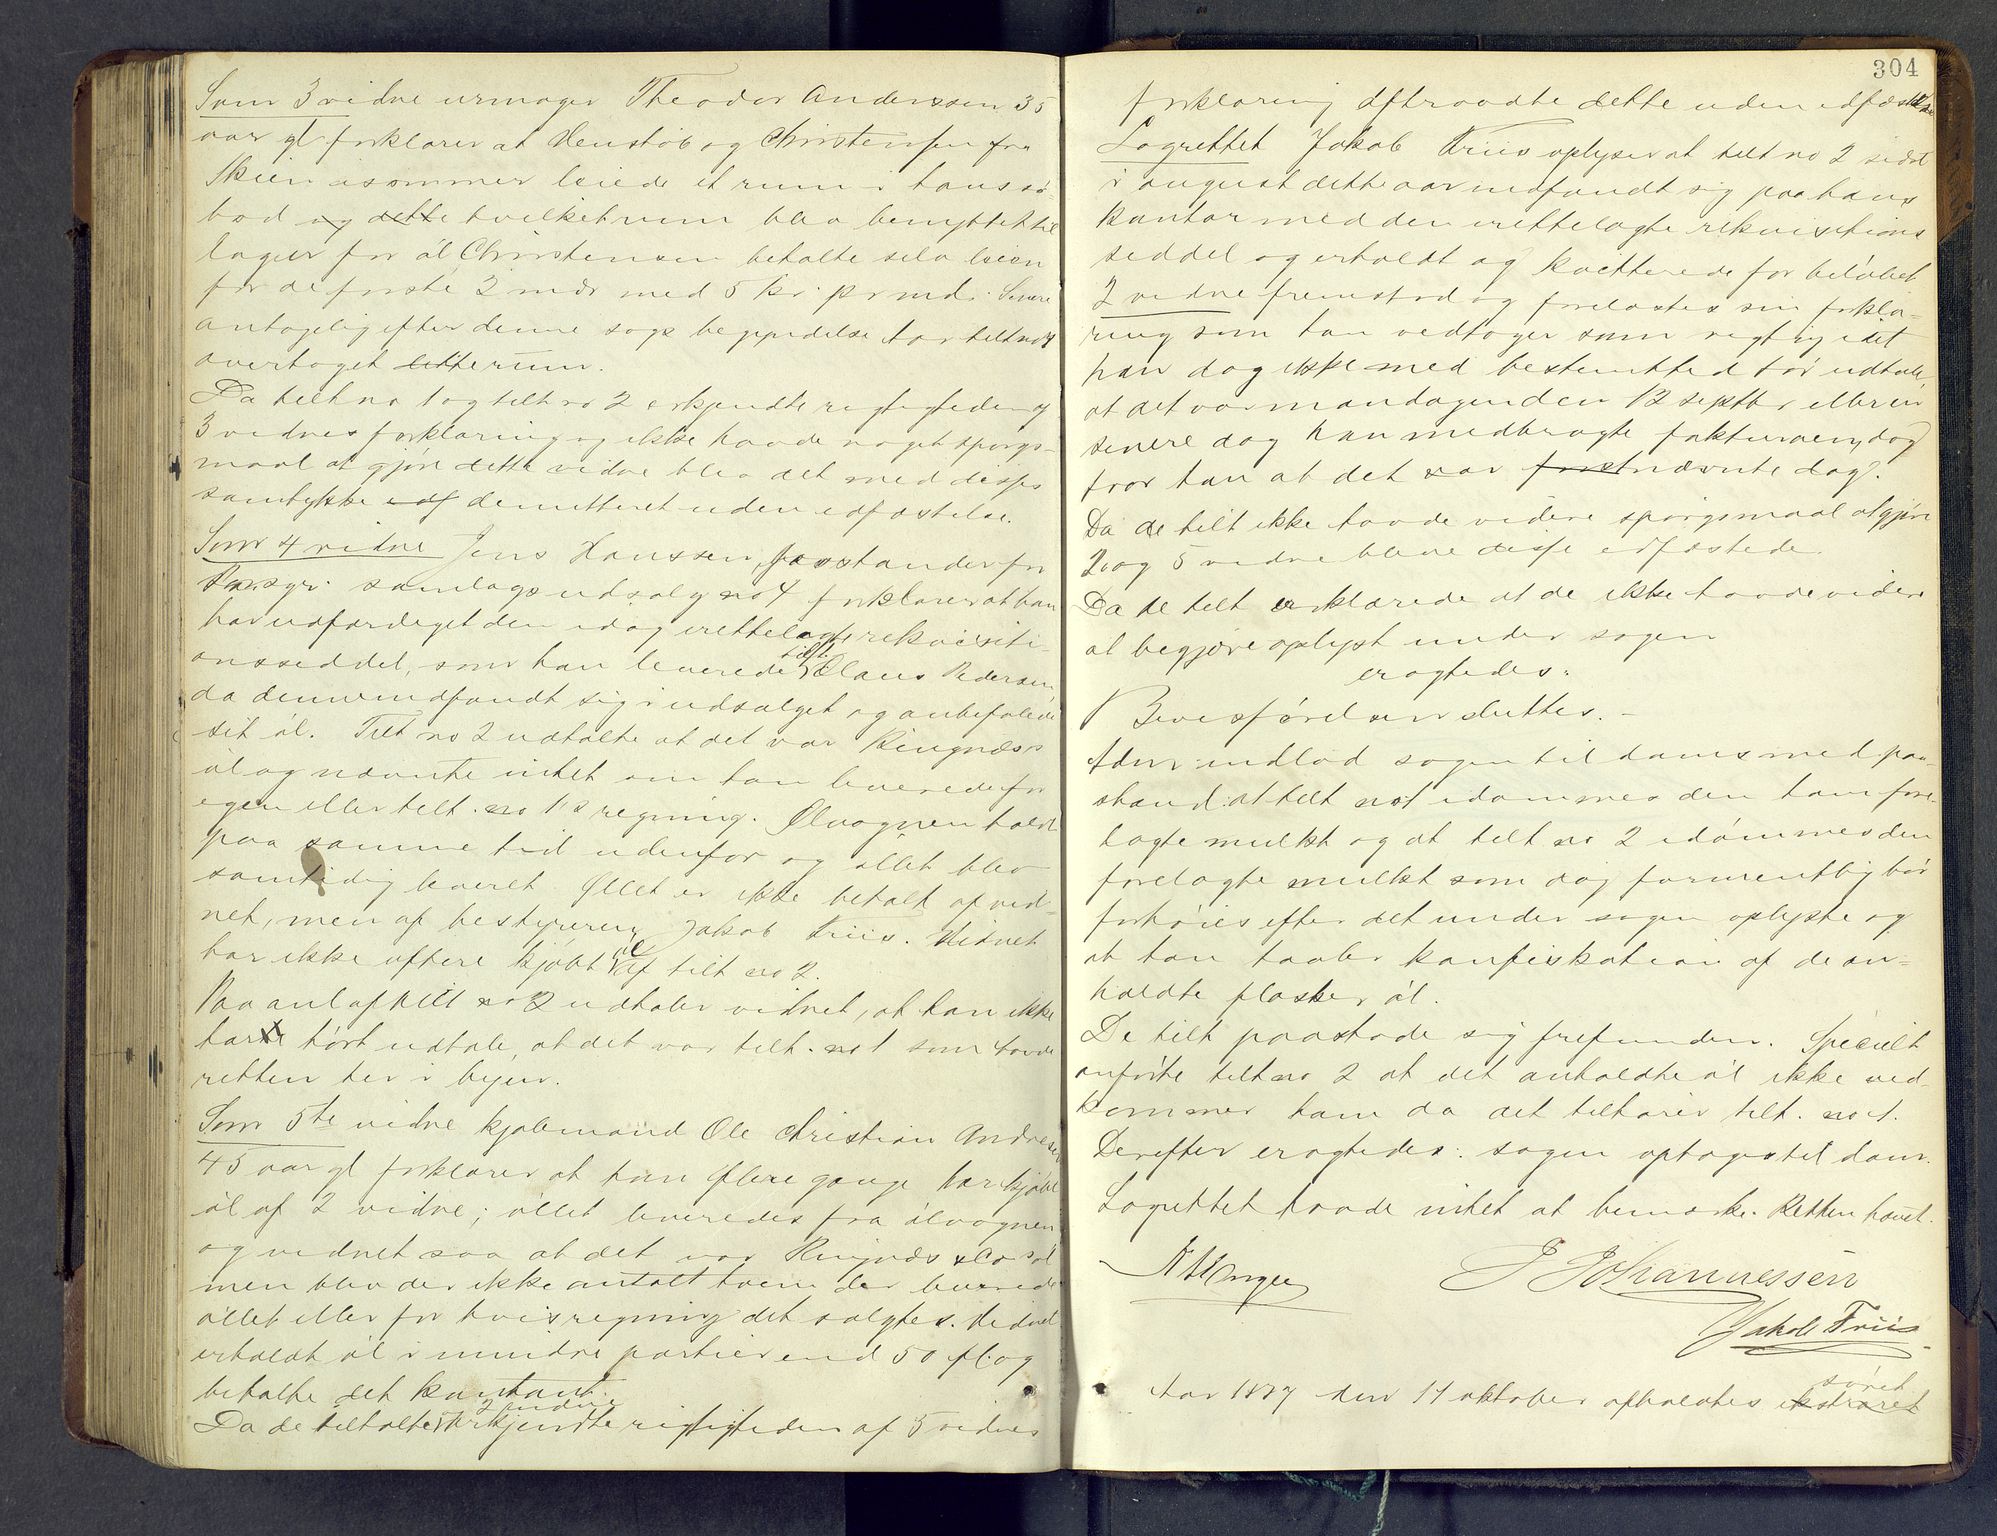 Som 3 vidne urmager Theodor Anderssen 35
aar gl forklarer at Venstøb og Christensen fra
Skien isommer leiede et rum i hans sø-
bod og dette hvilket rum blev benyttet til
lager for øl Christensen betalte selv leien
for de første 2 mdr med 5 kr. pr md. Senere
antagelig efter denne sags begyndelse har tilt no 1
overtaget dette rum.
Da tilt no 1 og tilt no 2 erkjendte rigtigheden af
3 vidnes forklaring og ikke havde noget spørgs-
maal at gjøre dette vidne blev det med disses
samtykke edf demitteret uden edfæstelse.
Som 4 vidne Jens Hanssen, forstander for
samlags udsalg no 4 forklarer at han
har udfærdiget den idag irettelagte rekvisiti-
onsseddel, som han leverede tilt Olaus Pedersen,
da denne indfandt sig i udsalget og anbefalede
sit øl. Tilt no 2 udtalte at det var Ringnæss
øl og nævnte intet om han leverede for
egen eller tilt. no 1's regning. Ølvognen holdt
paa samme tid udenfor og øllet blev
samtidig leveret. Øllet er ikke betalt af vid-
net, men af bestyreren Jakob Friis. Vidnet
har ikke oftere kjøbt øl af tilt no 2.
Paa anl af tilt no 2 udtaler vidnet, at han ikke
har hørt udtale, at det var tilt. no 1 som havde
retten her i byen.
Som 5te vidne kjøbmand Ole Christian Andresen
45 aar gl forklarer at han flere gange har kjøbt
øl af 2 vidne; øllet leveredes fra ølvognen
og vidnet saa at det var Ringnæs & Co's øl
men blev der ikke antalt hvem der leverede
øllet eller for hvis regning det solgtes. Vidnet
erholdt øl i mindre partier end 50 fl. og
betalte det kontant.
2 vidne
Da de tiltalte erkjendte rigtigheden af 5 vidnes
304
forklaring aftraadte dette uden edfæstelse
Lagrettet Jakob Friis oplyser at tilt no 2 sidst
i august dette aar indfandt sig paa hans
kontor med den irettelagte rekvisitions
seddel og erholdt og kvitterede for beløbet
2 vidne fremstod og forelæstes sin forkla-
ring som han vedtager som rigtig idet
han dog ikke med bestemthed tør udtale
at det var mandagen den 12 septbr eller en
senere dag han medbragte fakturaen, dog
tror han at det var førstnævnte dag.
Da de tilt ikke havde videre spørgsmaal at gjøre
2. og 5 vidne bleve disse edfæstede.
Da de tilt erklærede at de ikke havde videre
at begjære oplyst under sagen
eragtedes:
Bevisførelsen sluttes. -
Aktor indlod sagen til doms med paa-
stand: at tilt no 1 idømmes den ham fore-
lagte mulkt og at tilt no 2 idømmes den
forelagte mulkt som dog formentlig bør
forhøies efter det under sagen oplyste og
at han taaler konfiskation af de an-
holdte flasker øl.
De tilt paastode sig frefunden. Specielt
anførte tilt no 2 at det anholdte øl ikke ved-
kommer ham da det tilhører tilt. no 1.
Derefter eragtedes: sagen optages til dom.
Lagrettet havde intet at bemærke. Retten hævet.
J Johannessen
Jakob Friis
Aar 1887 den 14 oktober afholdtes ekstraret
søret